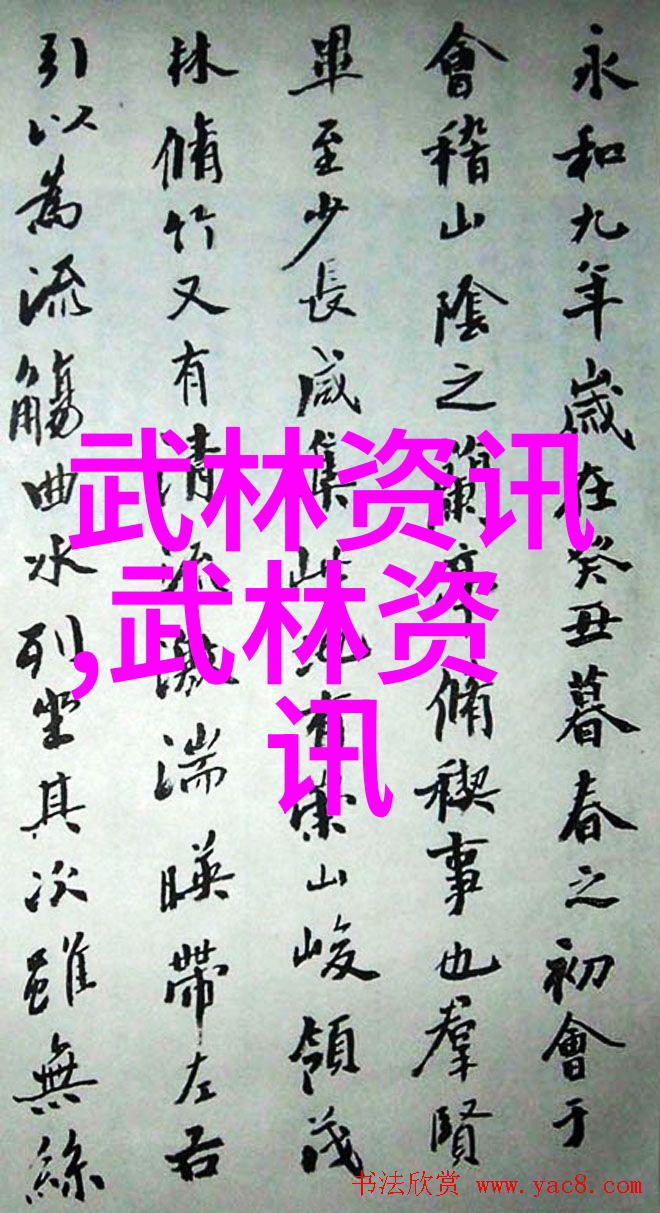 永和九年歲在癸丑暮春之初會于
會稽山陰之蘭亭脩稧事也羣賢
畢至少長咸集此地有崇山峻領茂
林脩竹又有清流激湍暎帶左右
引以為流觴曲水列坐其次雖無絲
武林资讯
,武林资
讯
书法欣赏 www.yac8.com